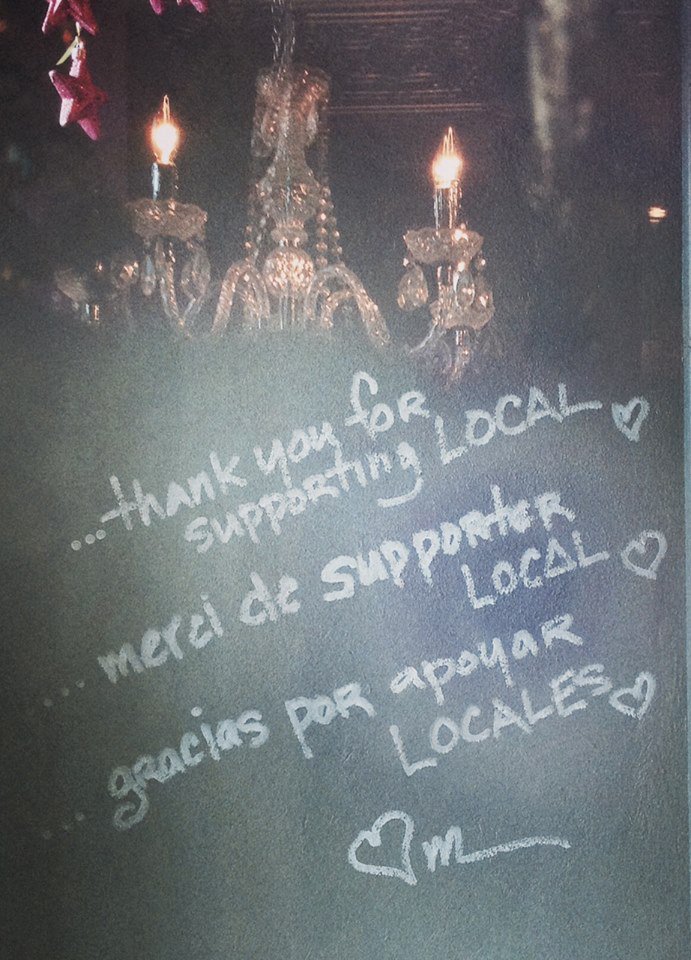 ...thank you for
supporting LOCAL
.... merci de supporter
LOCAL
... gracias por apoyar
LOCALES
m